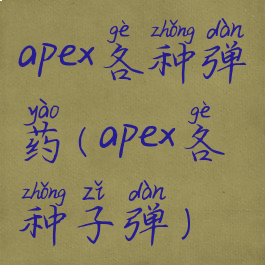 gè zhǒng dàn
apex各种弹
yào gè
药(apex各
zhǒng zǐ dàn
种子弹)